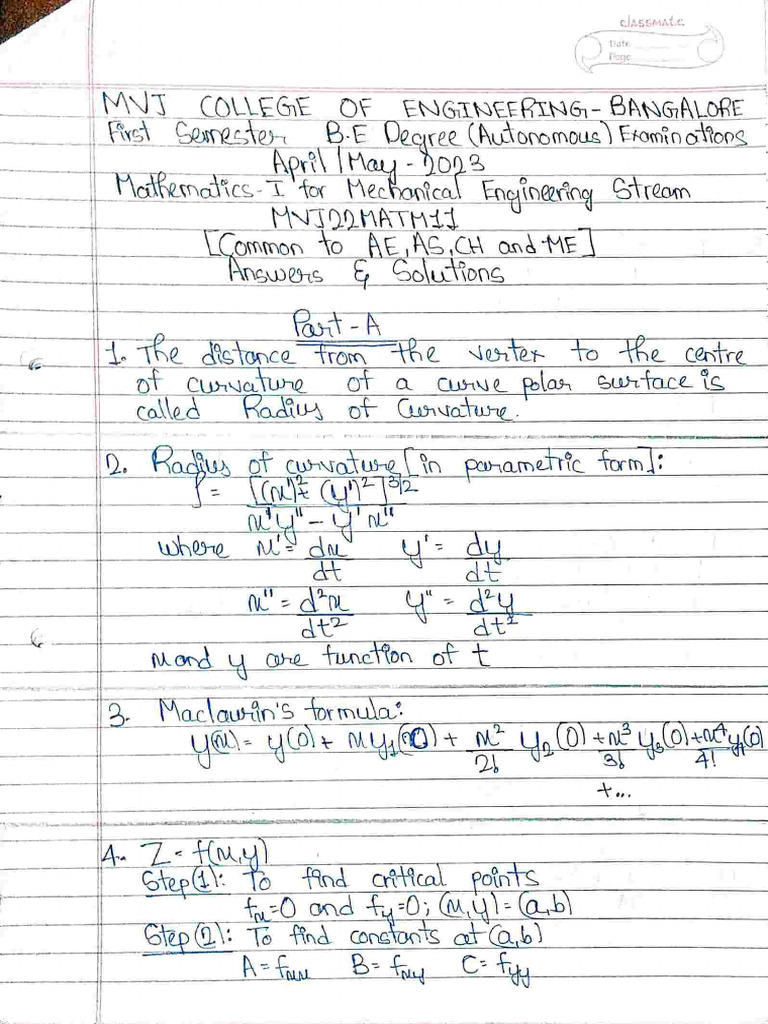 classmate
Date
Page
MVJ COLLEGE OF ENGINEERING-BANGALORE
First Semester B.E Degree (Autonomous) Examinations
April/May-2023
Mathematics-I for Mechanical Engineering Stream
MVJ22MATM11
[Common to AE, AS, CH and ME]
Answers & Solutions
Part-A
1. The distance from the vertex to the centre
of curvature of a curve polar surface is
called Radius of Curvature.
2. Radius of curvature [in parametric form]:
ρ = [(x')² + (y')²]^3/2 / x'y'' - y'x''
where x' = dx/dt y' = dy/dt
x'' = d²x/dt² y'' = d²y/dt²
x and y are function of t
3. Maclaurin's formula:
y(x) = y(0) + xy₁(0) + x²/2! y₂(0) + x³/3! y₃(0) + x⁴/4! y₄(0)
+...
4. Z = f(x,y)
Step(1): To find critical points
fx=0 and fy=0; (x,y)=(a,b)
Step(2): To find constants at (a,b)
A = fxx B = fxy C = fyy